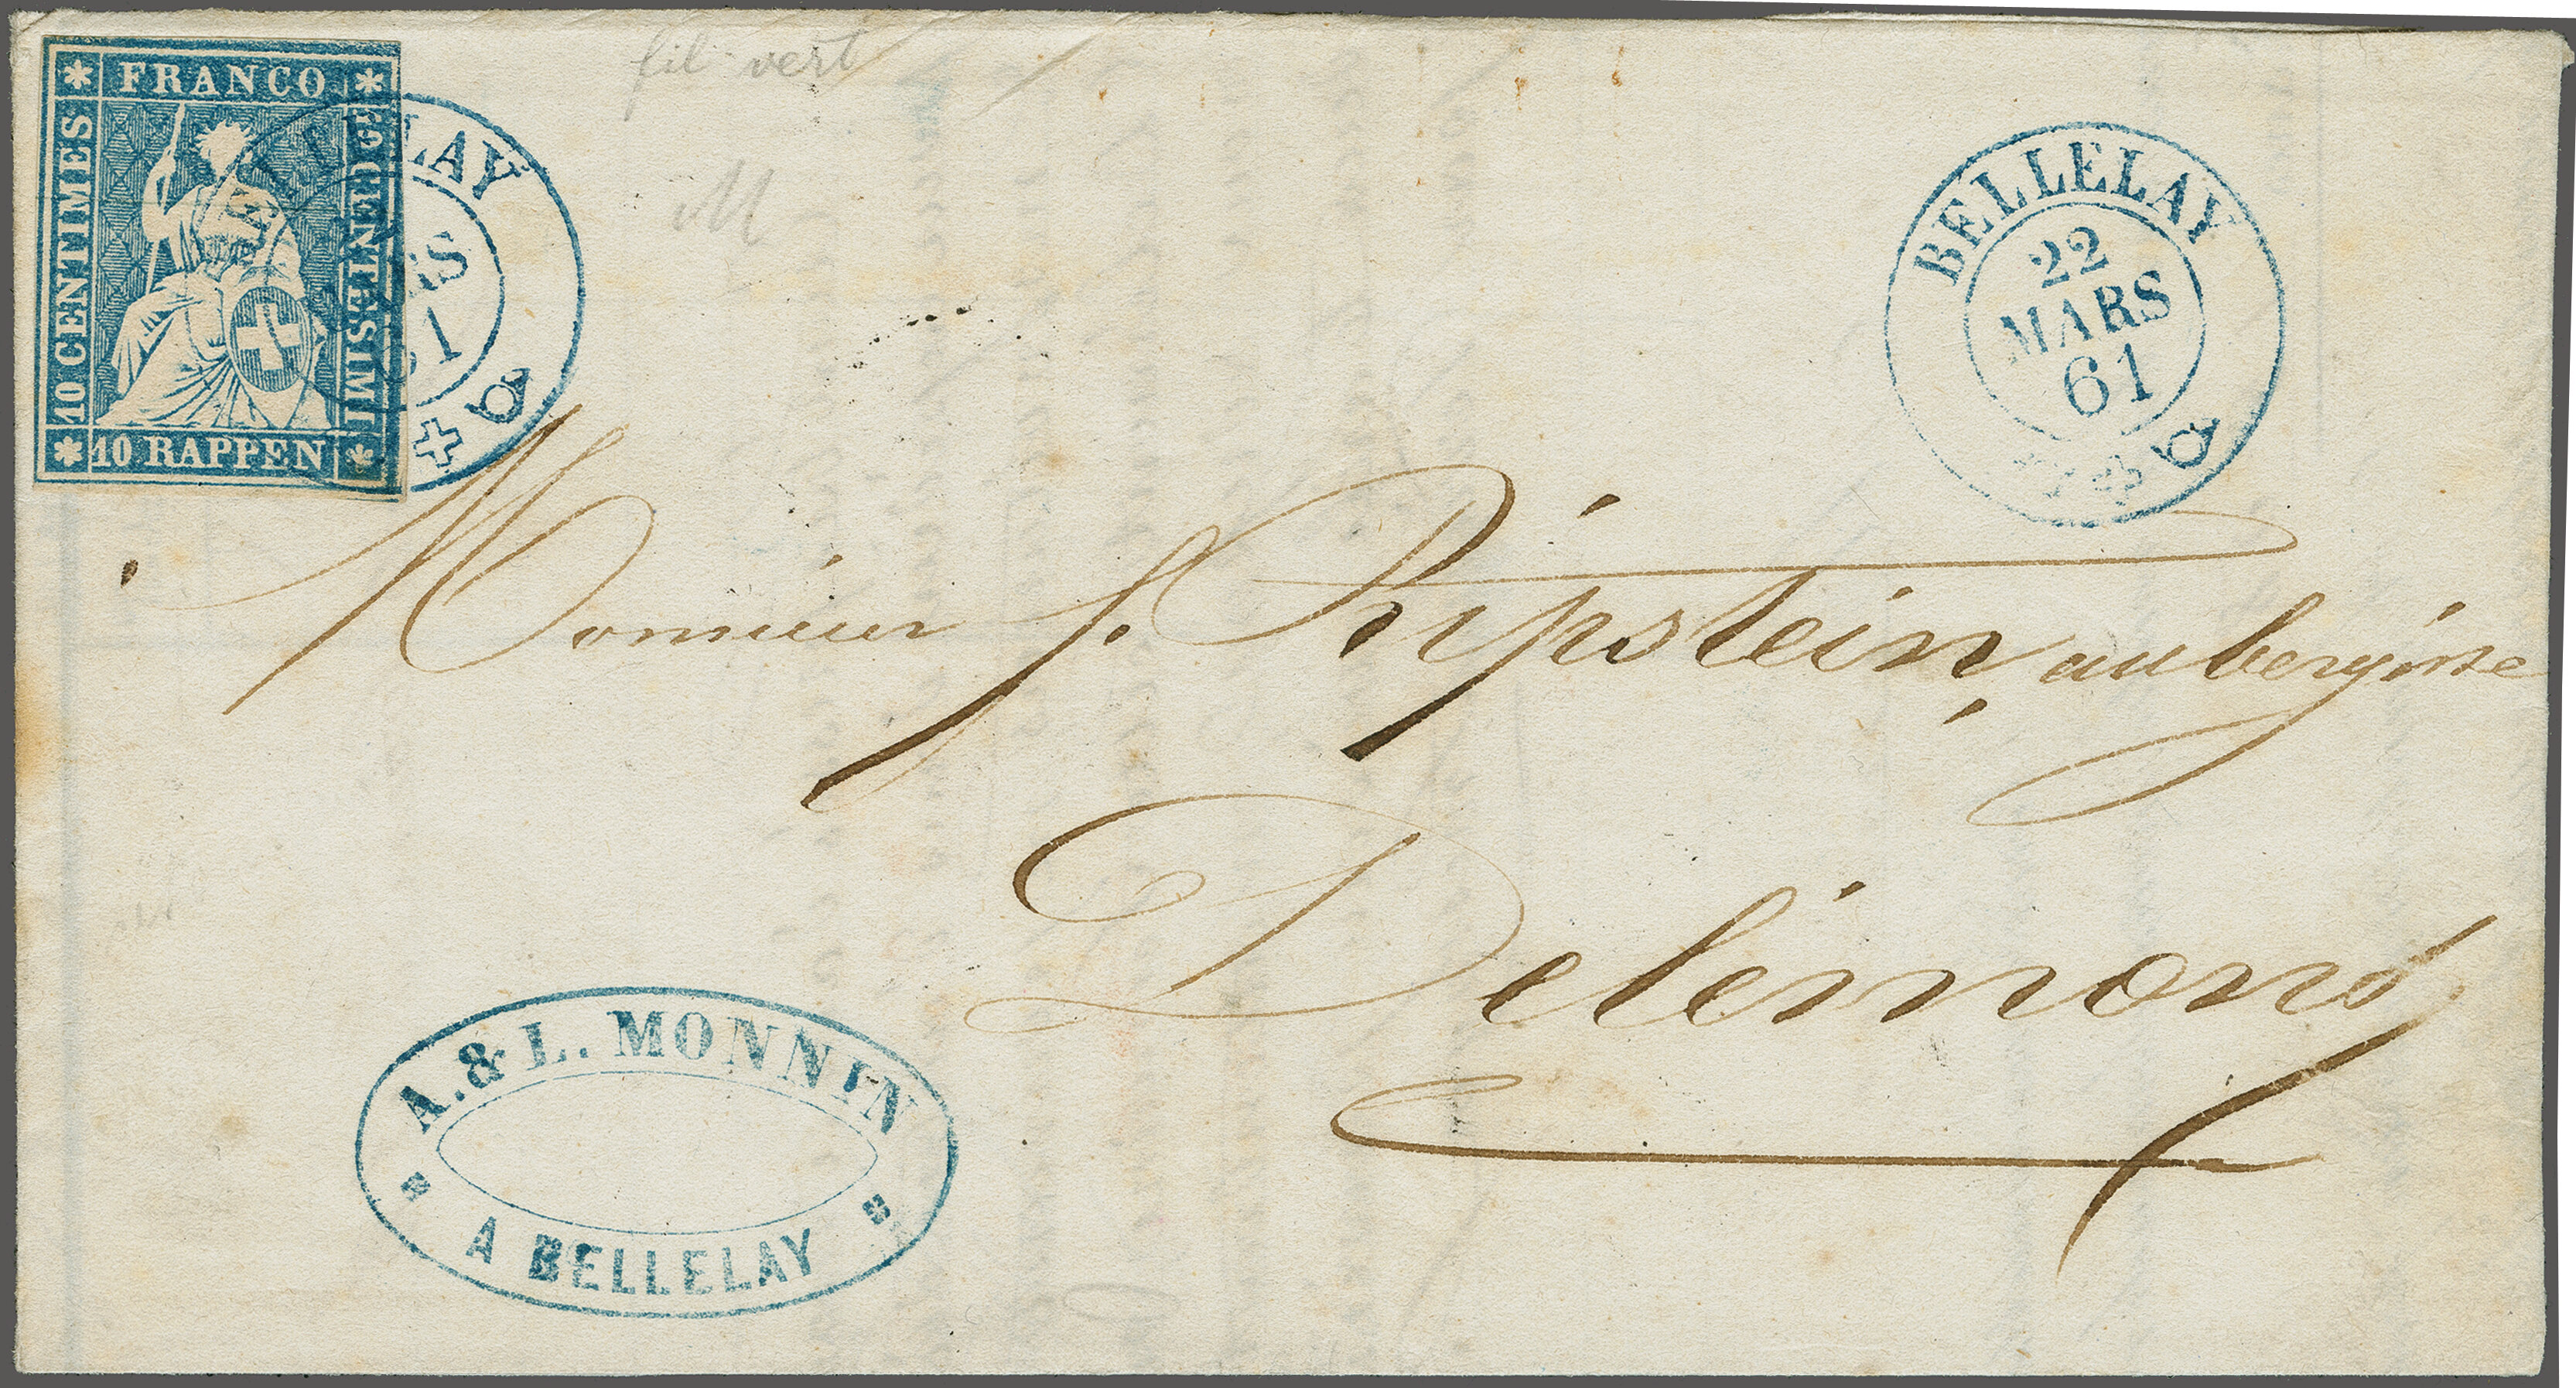 FRANCO
10 CENTIMES
10 CENTESIMI
10 RAPPEN
BELLELAY
MARS
61
fil vert
M
BELLELAY
22
MARS
61
Monsieur J. Ripstein, aubergiste
Délémont
A. & L. MONNIN
A BELLELAY